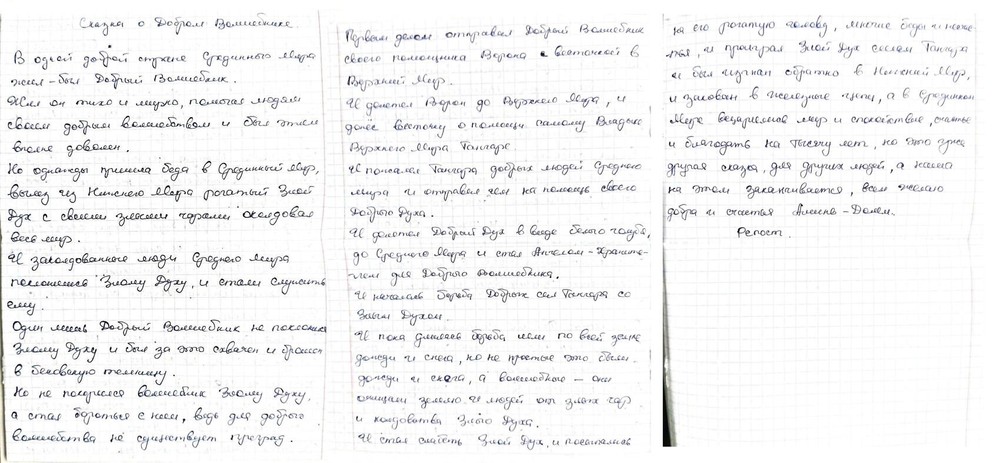 Сказка о Добром Волшебнике
В одной доброй стране Срединного Мира
жил-был Добрый Волшебник.
Жил он тихо и мирно, помогая людям
своим добрым волшебством и был этим
вполне доволен.
Но однажды пришла беда в Срединный Мир,
вылез из Нижнего Мира рогатый Злой
Дух с своими злыми чарами околдовал
весь мир.
И заколдованные люди Среднего Мира
поклонились Злому Духу, и стали служить
ему.
Один лишь Добрый Волшебник не поклонился
Злому Духу и был за это схвачен и брошен
в бесовскую темницу.
Но не покорился волшебник Злому Духу,
а стал бороться с ним, ведь для доброго
волшебства не существует преград.
Первым делом отправил Добрый Волшебник
своего помощника Ворона с весточкой в
Верхний Мир.
И долетел Ворон до Верхнего Мира, и
донёс весточку о помощи самому Владыке
Верхнего Мира Тангаре.
И пожалел Тангара добрых людей Среднего
мира и отправил им на помощь своего
Доброго Духа.
И долетел Добрый Дух в виде белого голубя,
до Среднего Мира и стал Ангелом-Храните-
лем для Доброго Волшебника.
И началась борьба Добрых сил Тангара со
Злым Духом.
И пока длилась борьба шли по всей земле
дожди и снега, но не простые это были
дожди и снега, а волшебные - они
очищали землю и людей от злых чар
и колдовства Злого Духа.
И стал слабеть Злой Дух, и посыпались
на его рогатую голову, многие беды и несчас-
тья, и проиграл Злой Дух силам Тангара
и был изгнан обратно в Нижний Мир,
и закован в железные цепи, а в Срединном
Мире воцарился мир и спокойствие, счастье
и благодать на тысячу лет, но это уже
другая сказка, для других людей, а наша
на этом заканчивается, всем желаю
добра и счастья
Репост.